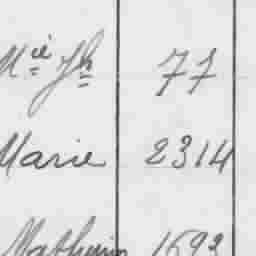 Mie Jh 77
Marie 2314
Mathurin 1593